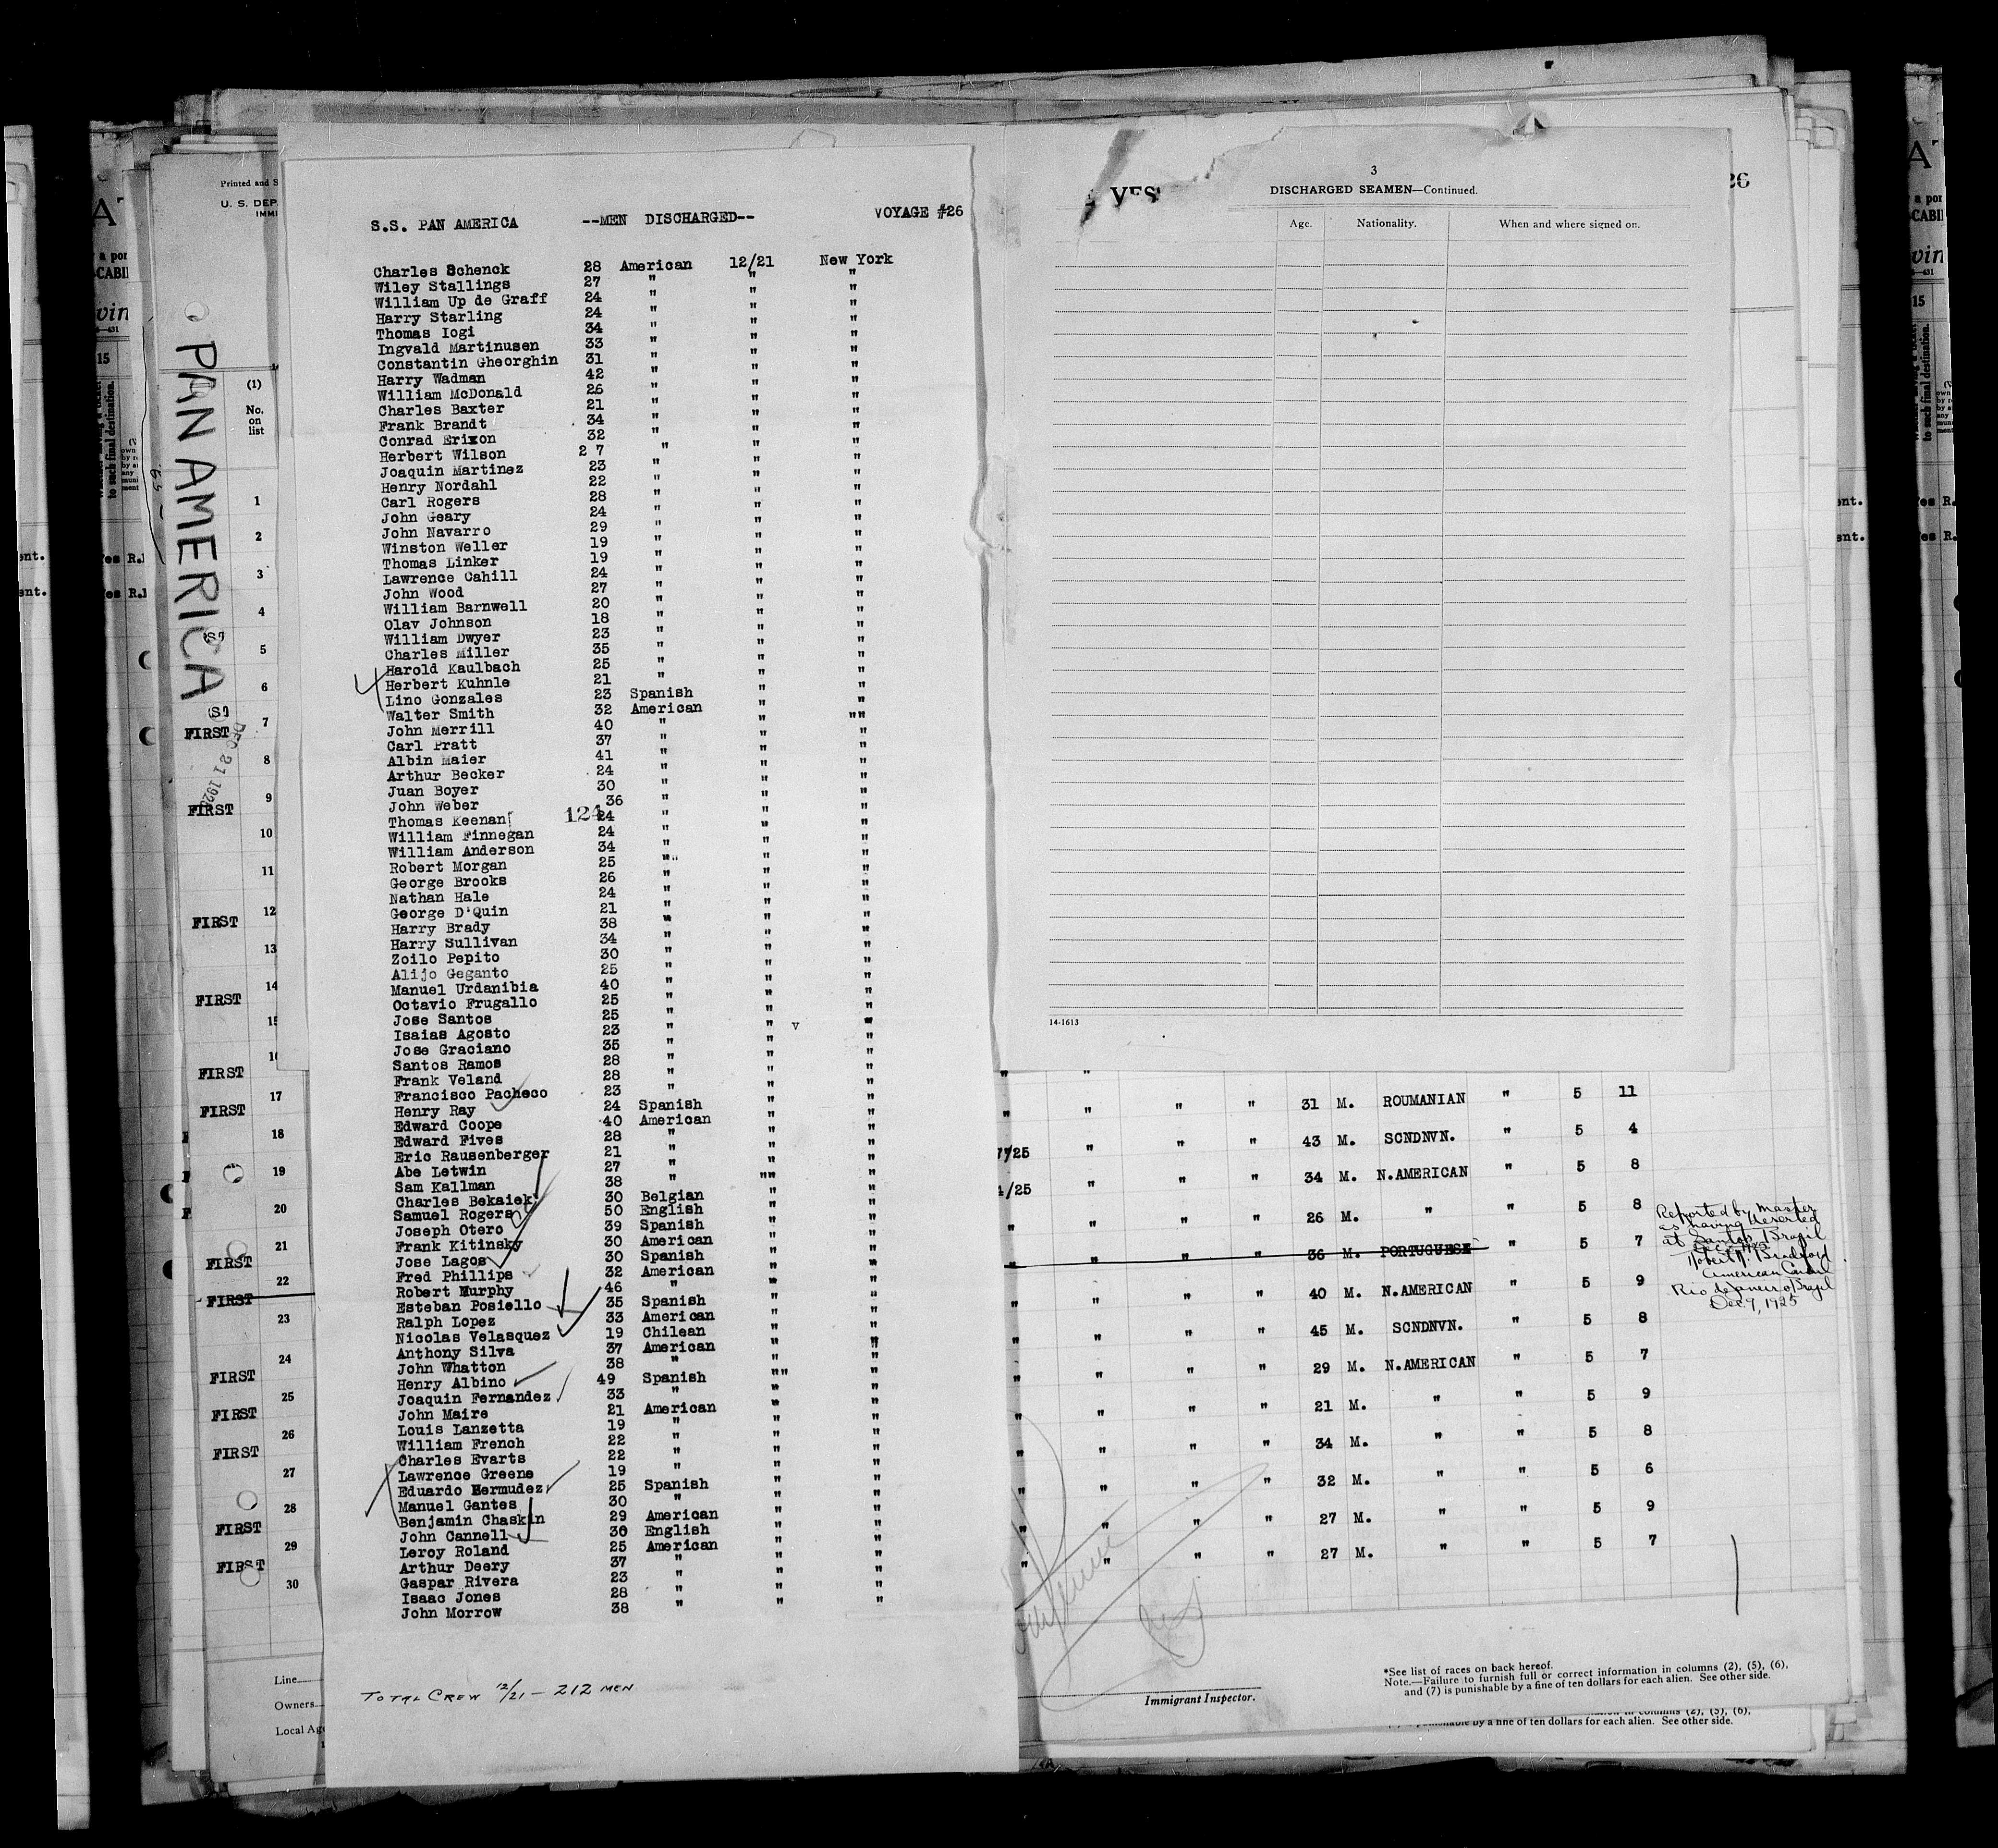 S.S. PAN AMERICA --MEN DISCHARGED-- VOYAGE #26
Charles Schenck 28 American 12/21 New York
Wiley Stallings 27 " " "
William Up de Graff 24 " " "
Harry Starling 24 " " "
Thomas Iogi 34 " " "
Ingvald Martinusen 33 " " "
Constantin Gheorghin 31 " " "
Harry Wadman 42 " " "
William McDonald 26 " " "
Charles Baxter 21 " " "
Frank Brandt 34 " " "
Conrad Erixon 32 " " "
Herbert Wilson 2 7 " " "
Joaquin Martinez 23 " " "
Henry Nordahl 22 " " "
Carl Rogers 28 " " "
John Geary 24 " " "
John Navarro 29 " " "
Winston Weller 19 " " "
Thomas Linker 19 " " "
Lawrence Cahill 24 " " "
John Wood 27 " " "
William Barnwell 20 " " "
Olav Johnson 18 " " "
William Dwyer 23 " " "
Charles Miller 35 " " "
Harold Kaulbach 25 " " "
Herbert Kuhnle 21 " " "
Lino Gonzales 23 Spanish " "
Walter Smith 32 American " ""
John Merrill 40 " " "
Carl Pratt 37 " " "
Albin Maier 41 " " "
Arthur Becker 24 " " "
Juan Boyer 30 " " "
John Weber 36 " " "
Thomas Keenan 124 24 " " "
William Finnegan 24 " " "
William Anderson 34 " " "
Robert Morgan 25 "" " "
George Brooks 26 " " "
Nathan Hale 24 " " "
George D'Quin 21 " " "
Harry Brady 38 " " "
Harry Sullivan 34 " " "
Zoilo Pepito 30 " " "
Alijo Geganto 25 " " "
Manuel Urdanibia 40 " " "
Octavio Frugallo 25 " " "
Jose Santos 25 " " "
Isaias Agosto 23 " " v "
Jose Graciano 35 " " "
Santos Ramos 28 " " "
Frank Veland 28 " " "
Francisco Pacheco 23 " " "
Henry Ray 24 Spanish " "
Edward Coope 40 American " "
Edward Fives 28 " " "
Eric Rausenberger 21 " " "
Abe Letwin 27 " " "
Sam Kallman 38 " "" "
Charles Bekaiek 30 Belgian " "
Samuel Rogers 50 English " "
Joseph Otero 39 Spanish " "
Frank Kitinsky 30 American " "
Jose Lagos 30 Spanish " "
Fred Phillips 32 American " "
Robert Murphy 46 " " "
Esteban Posiello 35 Spanish " "
Ralph Lopez 33 American " "
Nicolas Velasquez 19 Chilean " "
Anthony Silva 37 American " "
John Whatton 38 " "" "
Henry Albino 49 Spanish " "
Joaquin Fernandez 33 " " "
John Maire 21 American " "
Louis Lanzetta 19 " " "
William French 22 " " "
Charles Evarts 22 " " "
Lawrence Greene 19 " " "
Eduardo Bermudez 25 Spanish " "
Manuel Gantes 30 " " "
Benjamin Chaskin 29 American " "
John Cannell 30 English " "
Leroy Roland 25 American " "
Arthur Deery 37 " " "
Gaspar Rivera 23 " " "
Isaac Jones 28 " " "
John Morrow 38 " " "
TOTAL CREW 12/21 - 212 MEN
3
DISCHARGED SEAMEN—Continued.
Age. Nationality. When and where signed on.
14-1613
" " " 31 M. ROUMANIAN " 5 11
7/25 " " " 43 M. SCNDNVN. " 5 4
/25 " " " 34 M. N.AMERICAN " 5 8
" " " " 26 M. " " 5 8
" " " " 36 M. PORTUGUESE " 5 7
" " " " 40 M. N.AMERICAN " 5 9
" " " " 45 M. SCNDNVN. " 5 8
" " " 29 M. N.AMERICAN " 5 7
" " " " 21 M. " " 5 9
" " " " 34 M. " " 5 8
" " " " 32 M. " " 5 6
" " " " 27 M. " " 5 9
" " " " 27 M. " " 5 7
Reported by Master
as having deserted
at Santos Brazil
Robert R. Bradford
American Consul
Rio de Janeiro Brazil
Dec 9, 1925
Immigrant Inspector.
*See list of races on back hereof.
Note.—Failure to furnish full or correct information in columns (2), (5), (6),
and (7) is punishable by a fine of ten dollars for each alien. See other side.
by a fine of ten dollars for each alien. See other side.
Printed and S
U. S. DEP
IMMI
PAN AMERICA
DEC 21 192
(1)
No.
on
list
1
2
3
4
5
6
7
FIRST
8
9
FIRST
10
11
12
FIRST
13
14
FIRST
15
16
FIRST
17
FIRST
18
19
20
21
FIRST
22
FIRST
23
24
FIRST
25
FIRST
26
FIRST
27
28
FIRST
29
FIRST
30
Line
Owners
Local Ag
26
15
to such final destination.